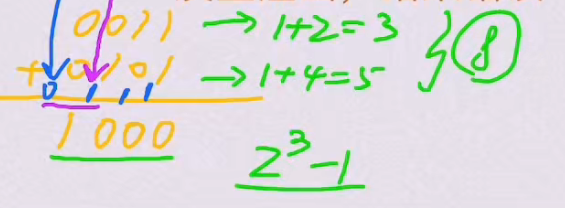 0011 → 1+2=3
+ 0101 → 1+4=5 } 8
0 1 1 1
1000
2³-1